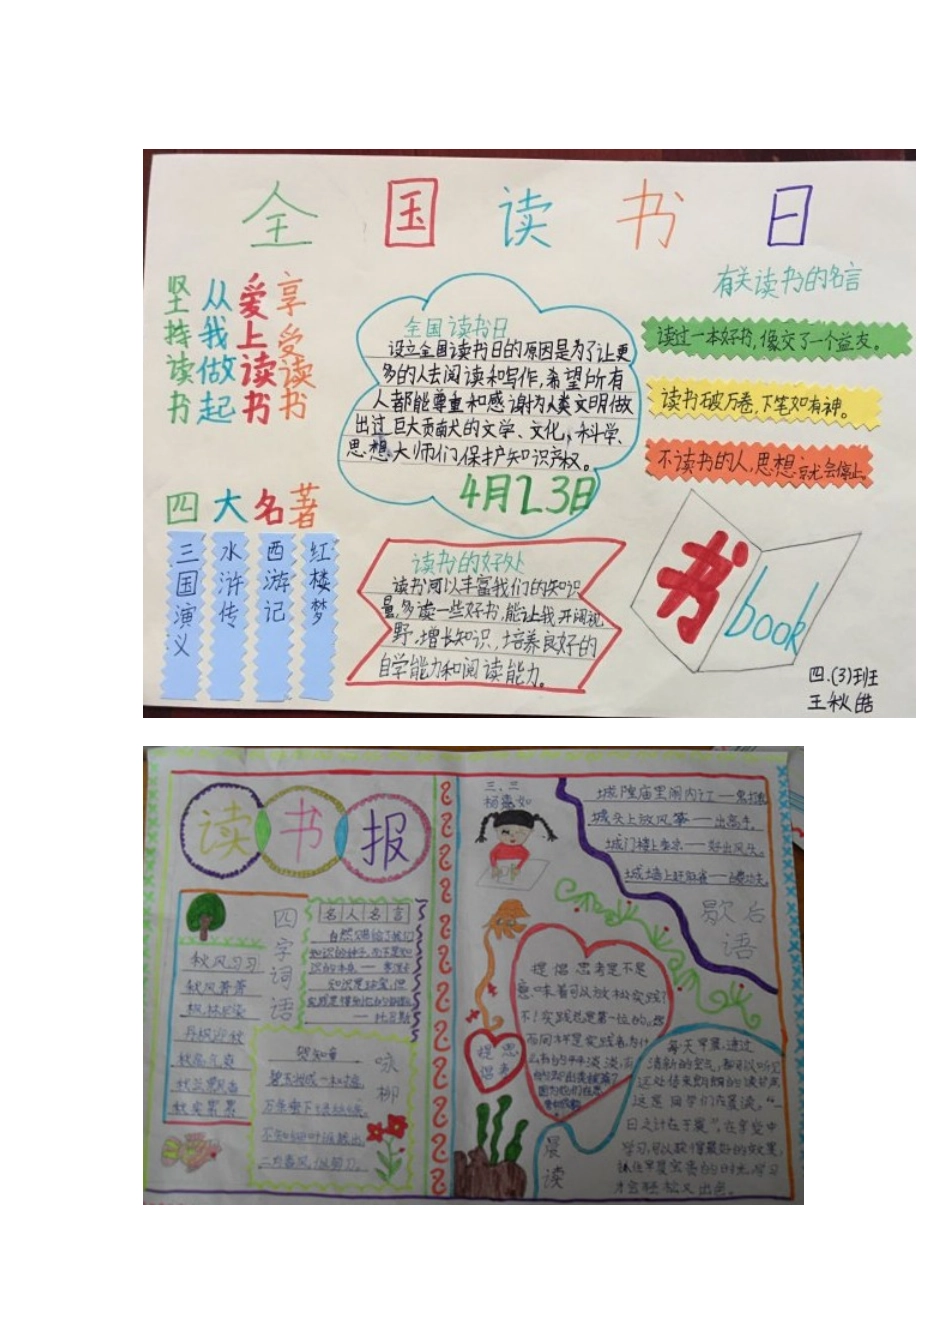 全国读书日
坚持读书
从我做起
爱上读书
享受读书
全国读书日
设立全国读书日的原因是为了让更
多的人去阅读和写作，希望所有
人都能尊重和感谢为人类文明做
出过巨大贡献的文学、文化、科学、
思想大师们，保护知识产权。
4月23日
有关读书的名言
读过一本好书，像交了一个益友。
读书破万卷，下笔如有神。
不读书的人，思想就会停止。
四大名著
三国演义
水浒传
西游记
红楼梦
读书的好处
读书可以丰富我们的知识
量，多读一些好书，能让我开阔视
野，增长知识，培养良好的
自学能力和阅读能力。
书
book
四.(3)班
王秋皓
读书报
四字词语
秋风习习
秋风萧萧
丹枫迎秋
秋高气爽
秋兰飘香
秋实累累
名人名言
自然只给了我们
知识的种子，而不是知
识的本身
知识是珍宝，但
咏柳
贺知章
碧玉妆成一树高，
万条垂下绿丝绦。
不知细叶谁裁出，
二月春风似剪刀。
三、二
城隍庙里闹内江——
城头上放风筝——出高手。
城门楼上乘凉——好出风头。
歇后语
提倡思考
提倡思考是不是
意味着可以放松实践？
不！实践总是第一位的。
晨读
每天早晨，通过
清新的空气，都可以听见
这是同学们在晨读。“一
日之计在于晨”，在享受中
学习，可以取得最好的效果，
抓住早晨宝贵的时光，学习
才会轻松又出色。